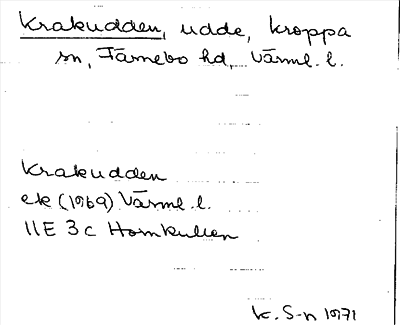 Krakudden, udde, Kroppa
sn, Färnebo hd, Värml. l.
Krakudden
ek (1969) Värml. l.
11E 3c Hornkullen
K. S-n 1971